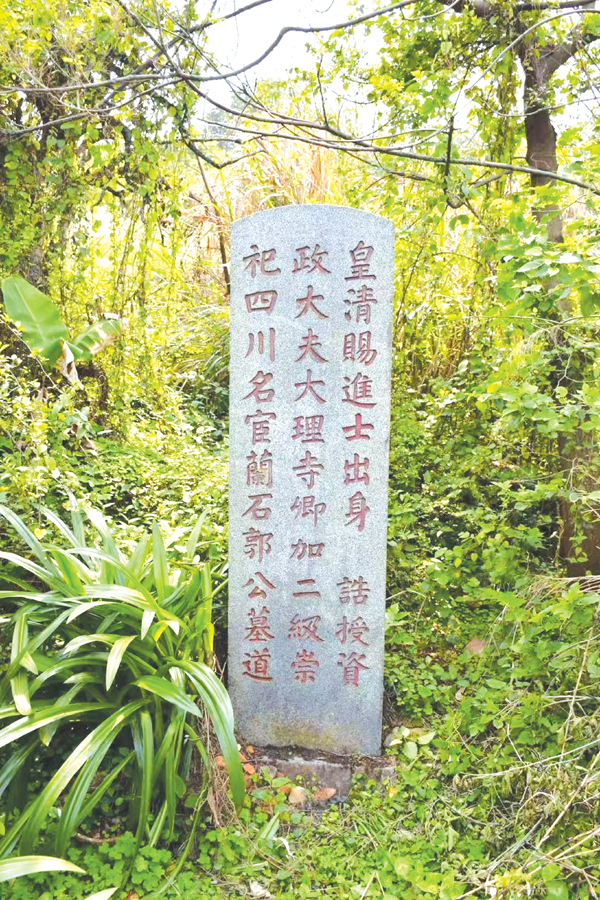 皇清賜進士出身 誥授資
政大夫大理寺卿加二級崇
祀四川名宦蘭石郭公墓道